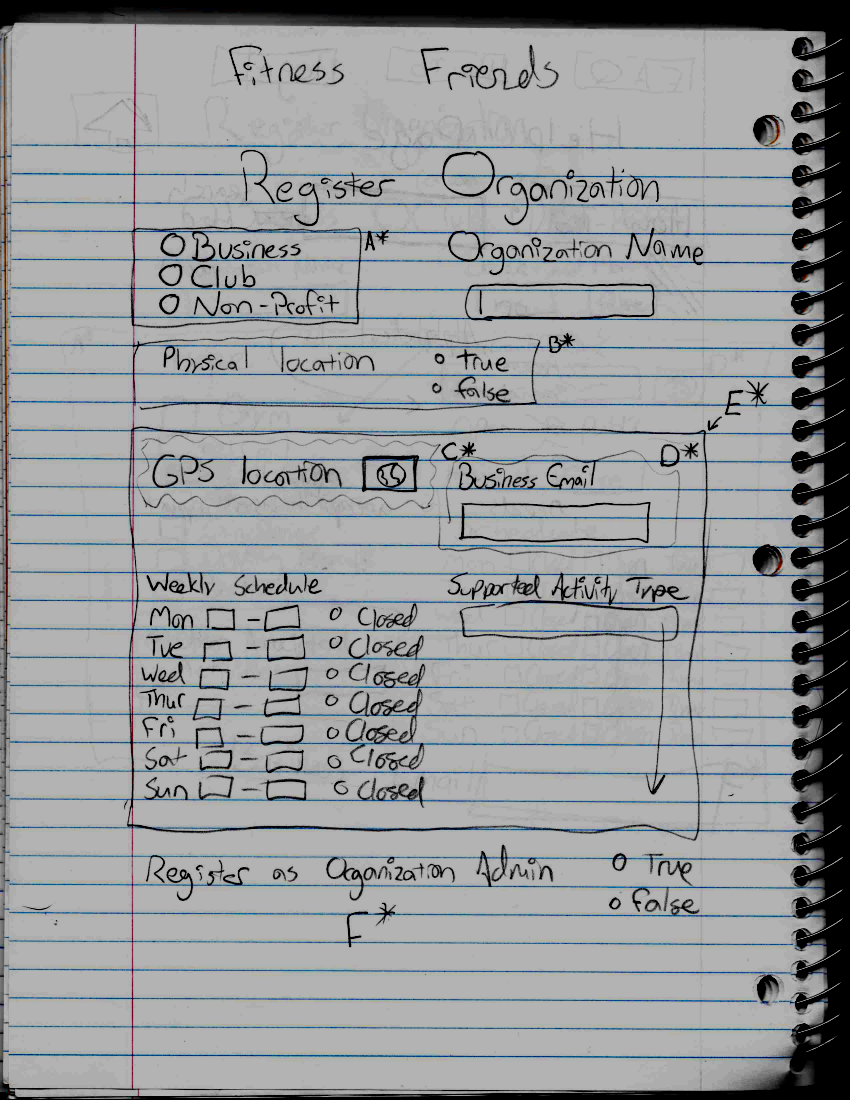 Fitness Friends
Register Organization
Business A*
Club
Non-Profit
Organization Name
Physical location true B*
false
E*
GPS location
C* D*
Business Email
Weekly Schedule
Mon - Closed
Tue - Closed
Wed - Closed
Thur - Closed
Fri - Closed
Sat - Closed
Sun - Closed
Supported Activity Type
Register as Organization Admin True
False
F*